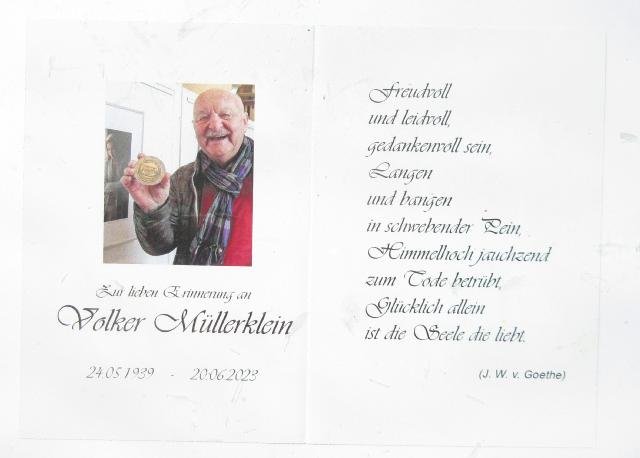 Zur lieben Erinnerung an
Volker Müllerklein
24.05.1939 - 20.06.2023
Freudvoll
und leidvoll,
gedankenvoll sein,
Langen
und bangen
in schwebender Pein,
Himmelhoch jauchzend
zum Tode betrübt,
Glücklich allein
ist die Seele die liebt.
(J. W. v. Goethe)